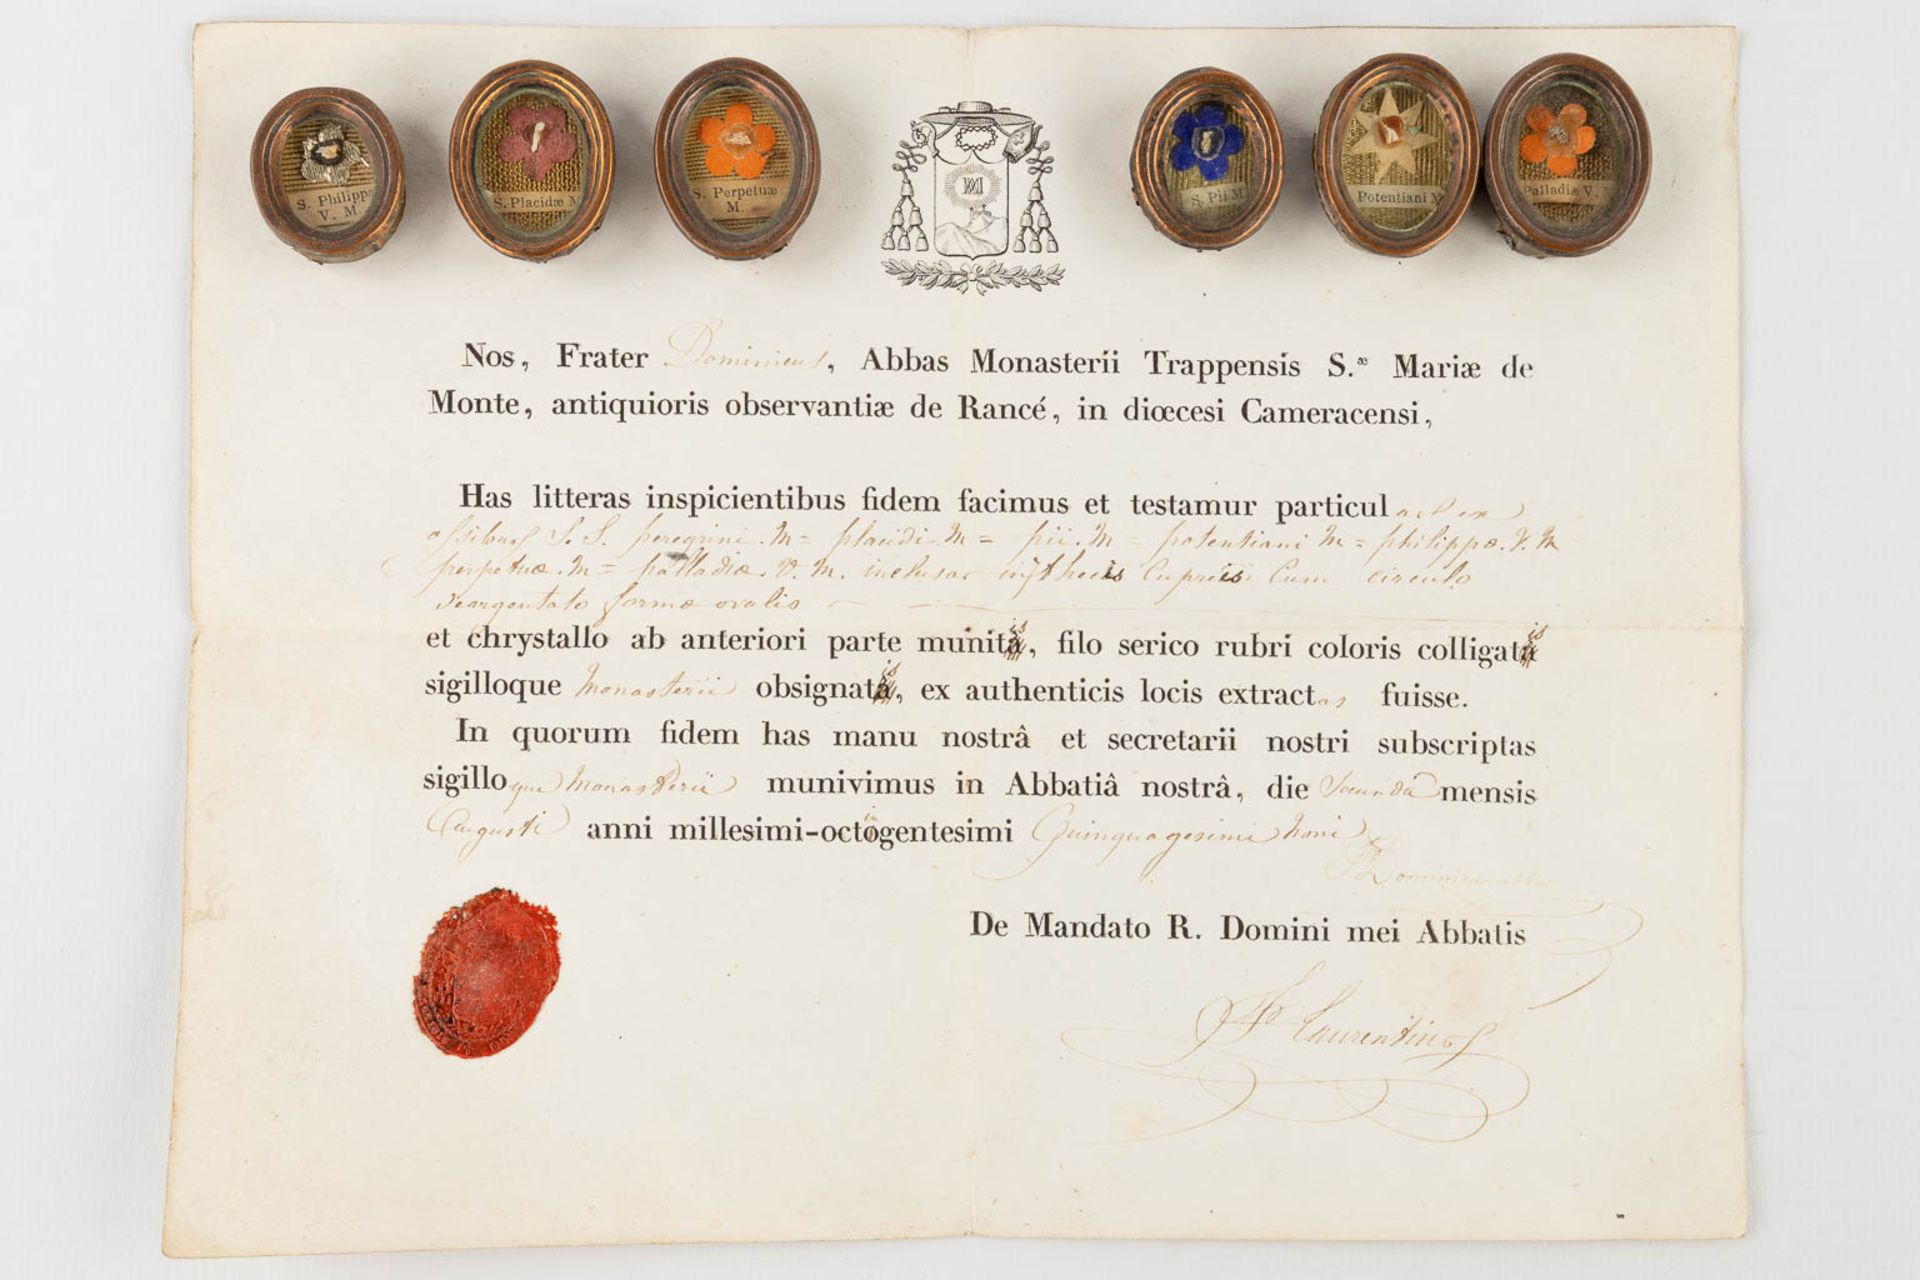 S. Philippæ
V. M
S. Placidæ M
S. Perpetuæ
M.
S. Pii M
Potentiani M
Palladiæ V.
Nos, Frater Dominicus, Abbas Monasterii Trappensis S.æ Mariæ de
Monte, antiquioris observantiæ de Rancé, in diœcesi Cameracensi,
Has litteras inspicientibus fidem facimus et testamur particulas ex
ossibus S. S. peregrini. M = placidi. M = pii. M = potentiani M = philippæ. V. M
perpetuæ. M = palladiæ. V. M. inclusas in thecis cupreis Cum circulo
deargentato formæ ovalis
et chrystallo ab anteriori parte munitis, filo serico rubri coloris colligatis
sigilloque Monasterii obsignatis, ex authenticis locis extractas fuisse.
In quorum fidem has manu nostrâ et secretarii nostri subscriptas
sigilloque Monasterii munivimus in Abbatiâ nostrâ, die Secunda mensis
Augusti anni millesimi-octingentesimi Quinquagesimi Noni
Dominicus abbas
De Mandato R. Domini mei Abbatis
Fr Laurentius